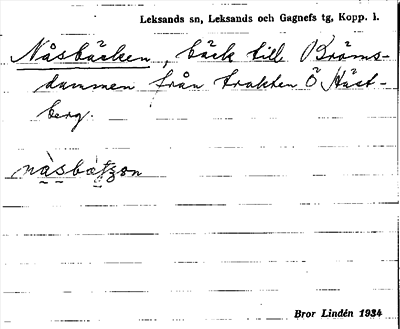 Leksands sn, Leksands och Gagnefs tg, Kopp. l.
Nåsbäcken, bäck till Bröms-
dammen från trakten Ö Häst-
berg.
Bror Lindén 1934